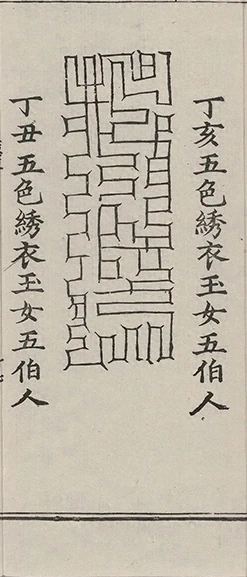 丁亥五色綉衣玉女五伯人
丁丑五色綉衣玉女五伯人